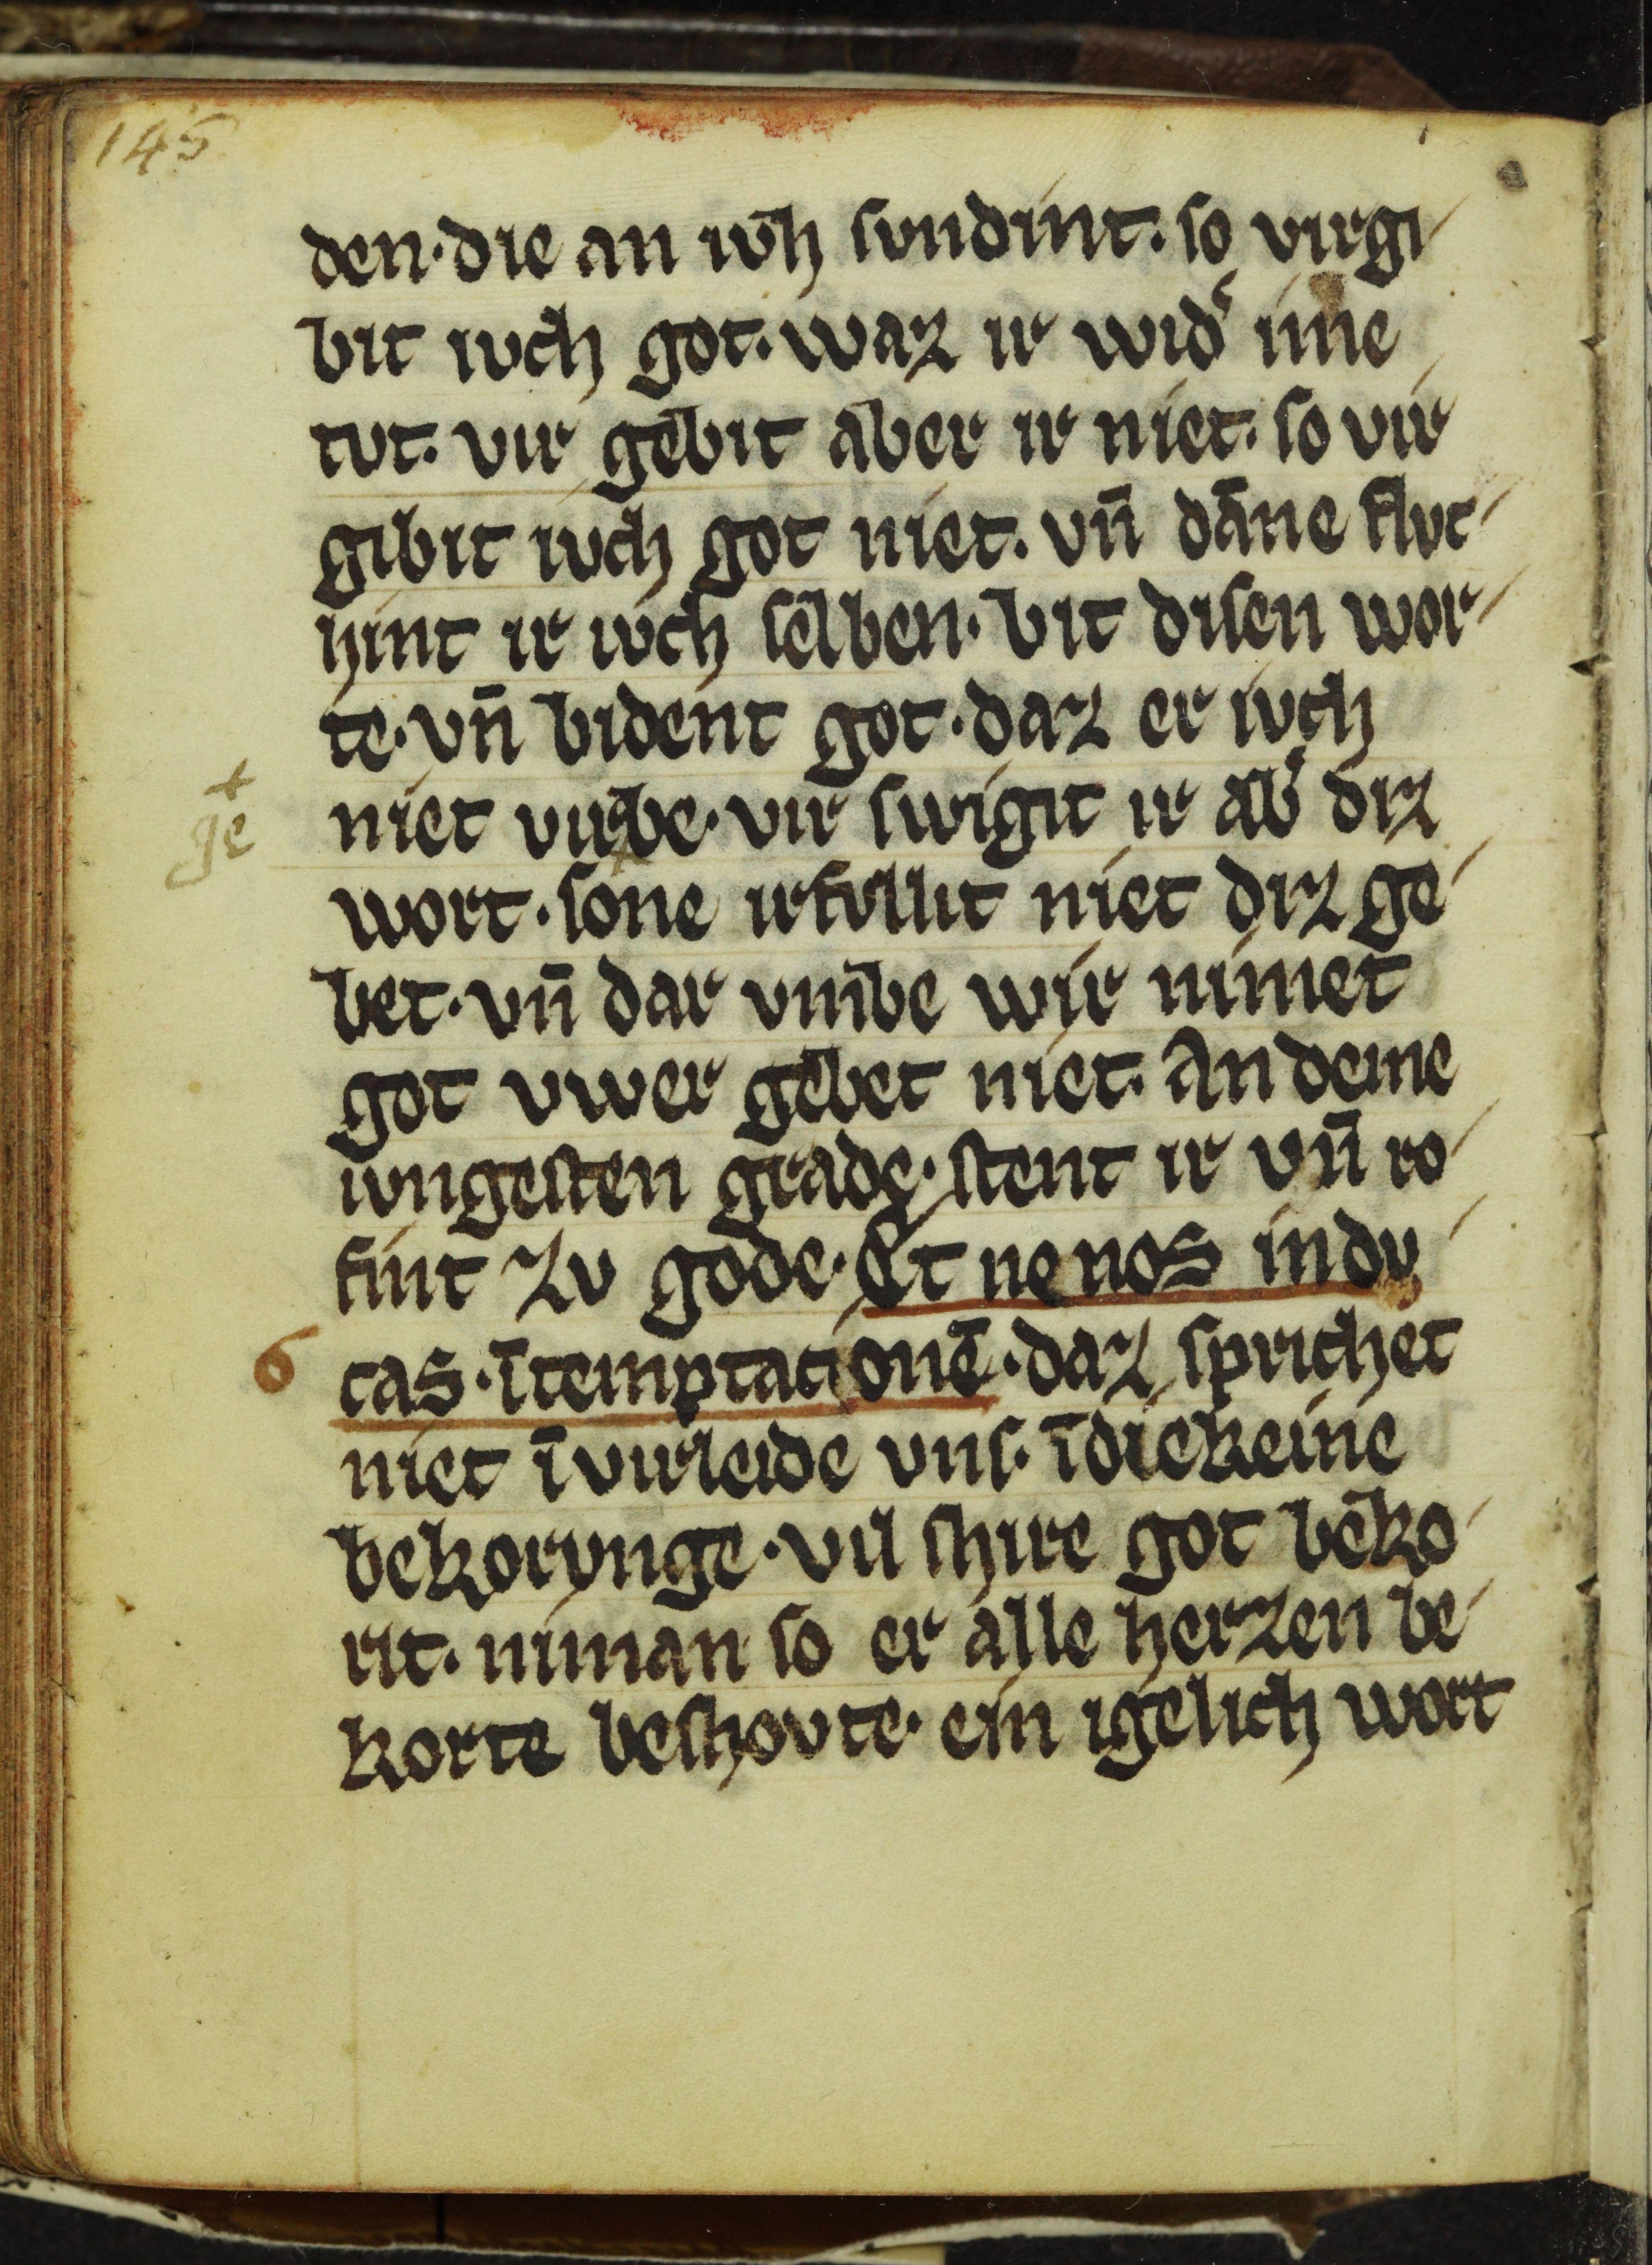 145
den·die an iv̄h svndint. so virgi
bit ivch got. waz ir wid' ime
tvt. vir gebit aber ir niet. so vir
gibit ivch got niet. vn̄ dāne flvc
hint ir ivch selben. bit disen wor
te·vn̄ bident got·daz er ivch
ge niet virbe·vir swigit ir ab' diz
wort·sone irfvllit niet diz ge
bet·vn̄ dar vmbe wir nimet
got vwer gebet niet. An deme
ivngesten grade·stent ir vn̄ ro
fint zv gode·Et ne nos indv
6 cas·ītemptationē·daz sprichet
niet ī virleide vns. ī diekeine
bekorvnge·vil shire got beko
rit. niman so er alle herzen be
korte beshovte· ein igelich wort